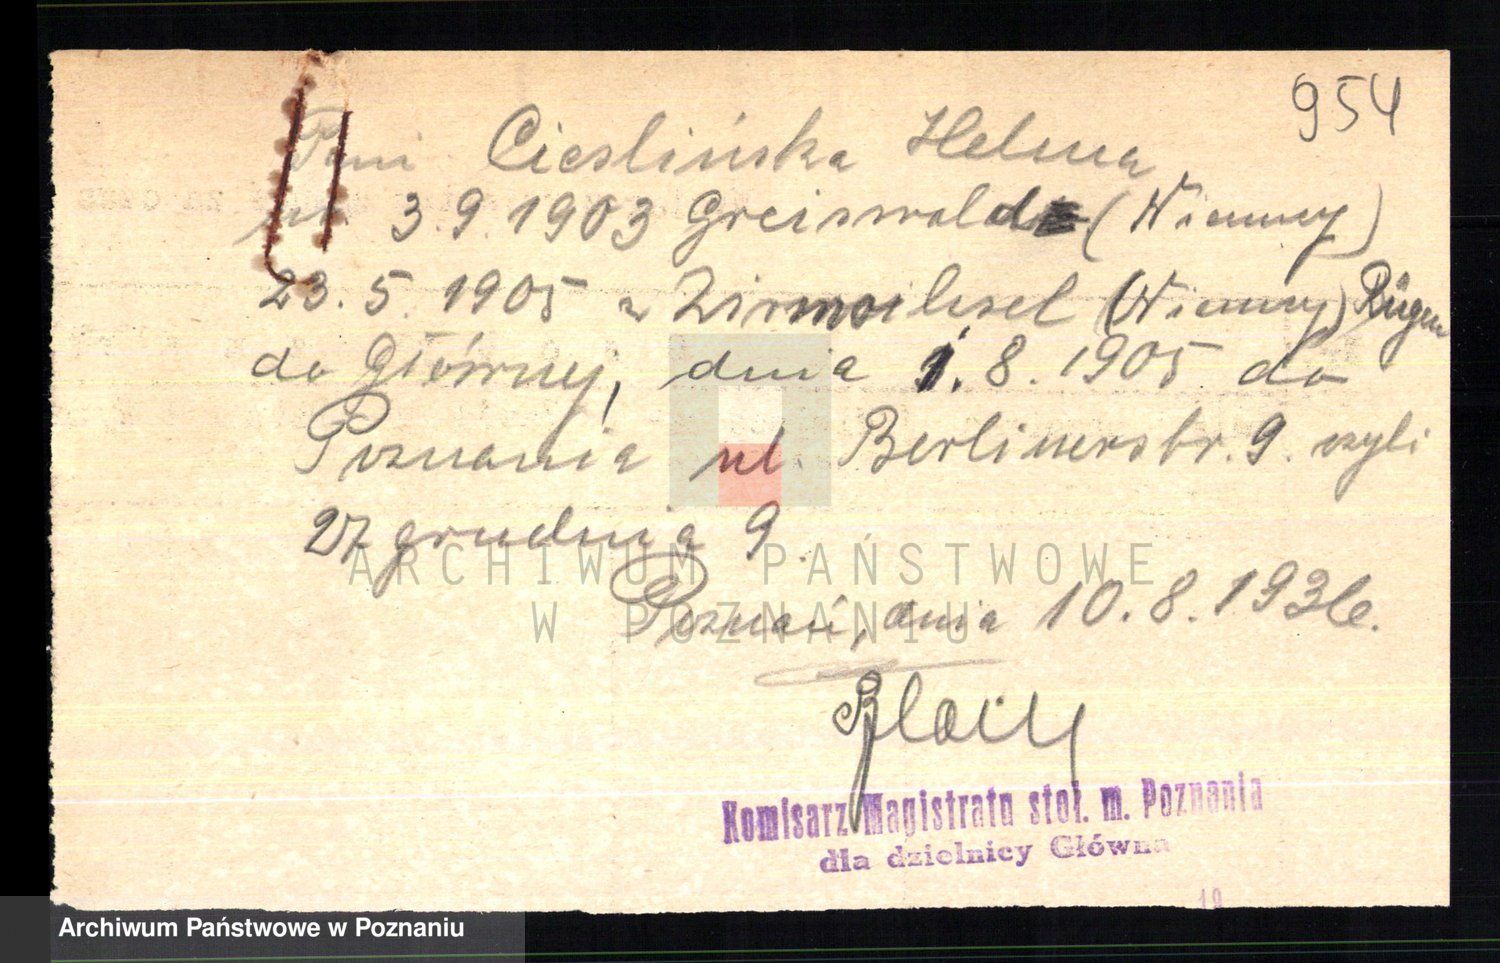 954
Pani Cieslińska Helena
ur. 3.9.1903 Greiswald (Niemcy)
23.5.1905 z Zirmoilesel (Niemcy) Rügen
do Główny, dnia 1.8.1905 do
Poznania ul. Berlinerstr. 9. czyli
27 grudnia 9.
Poznań, dnia 10.8.1936.
Komisarz Magistratu stoł. m. Poznania
dla dzielnicy Główna
19
ARCHIWUM PAŃSTWOWE
W POZNANIU
Archiwum Państwowe w Poznaniu